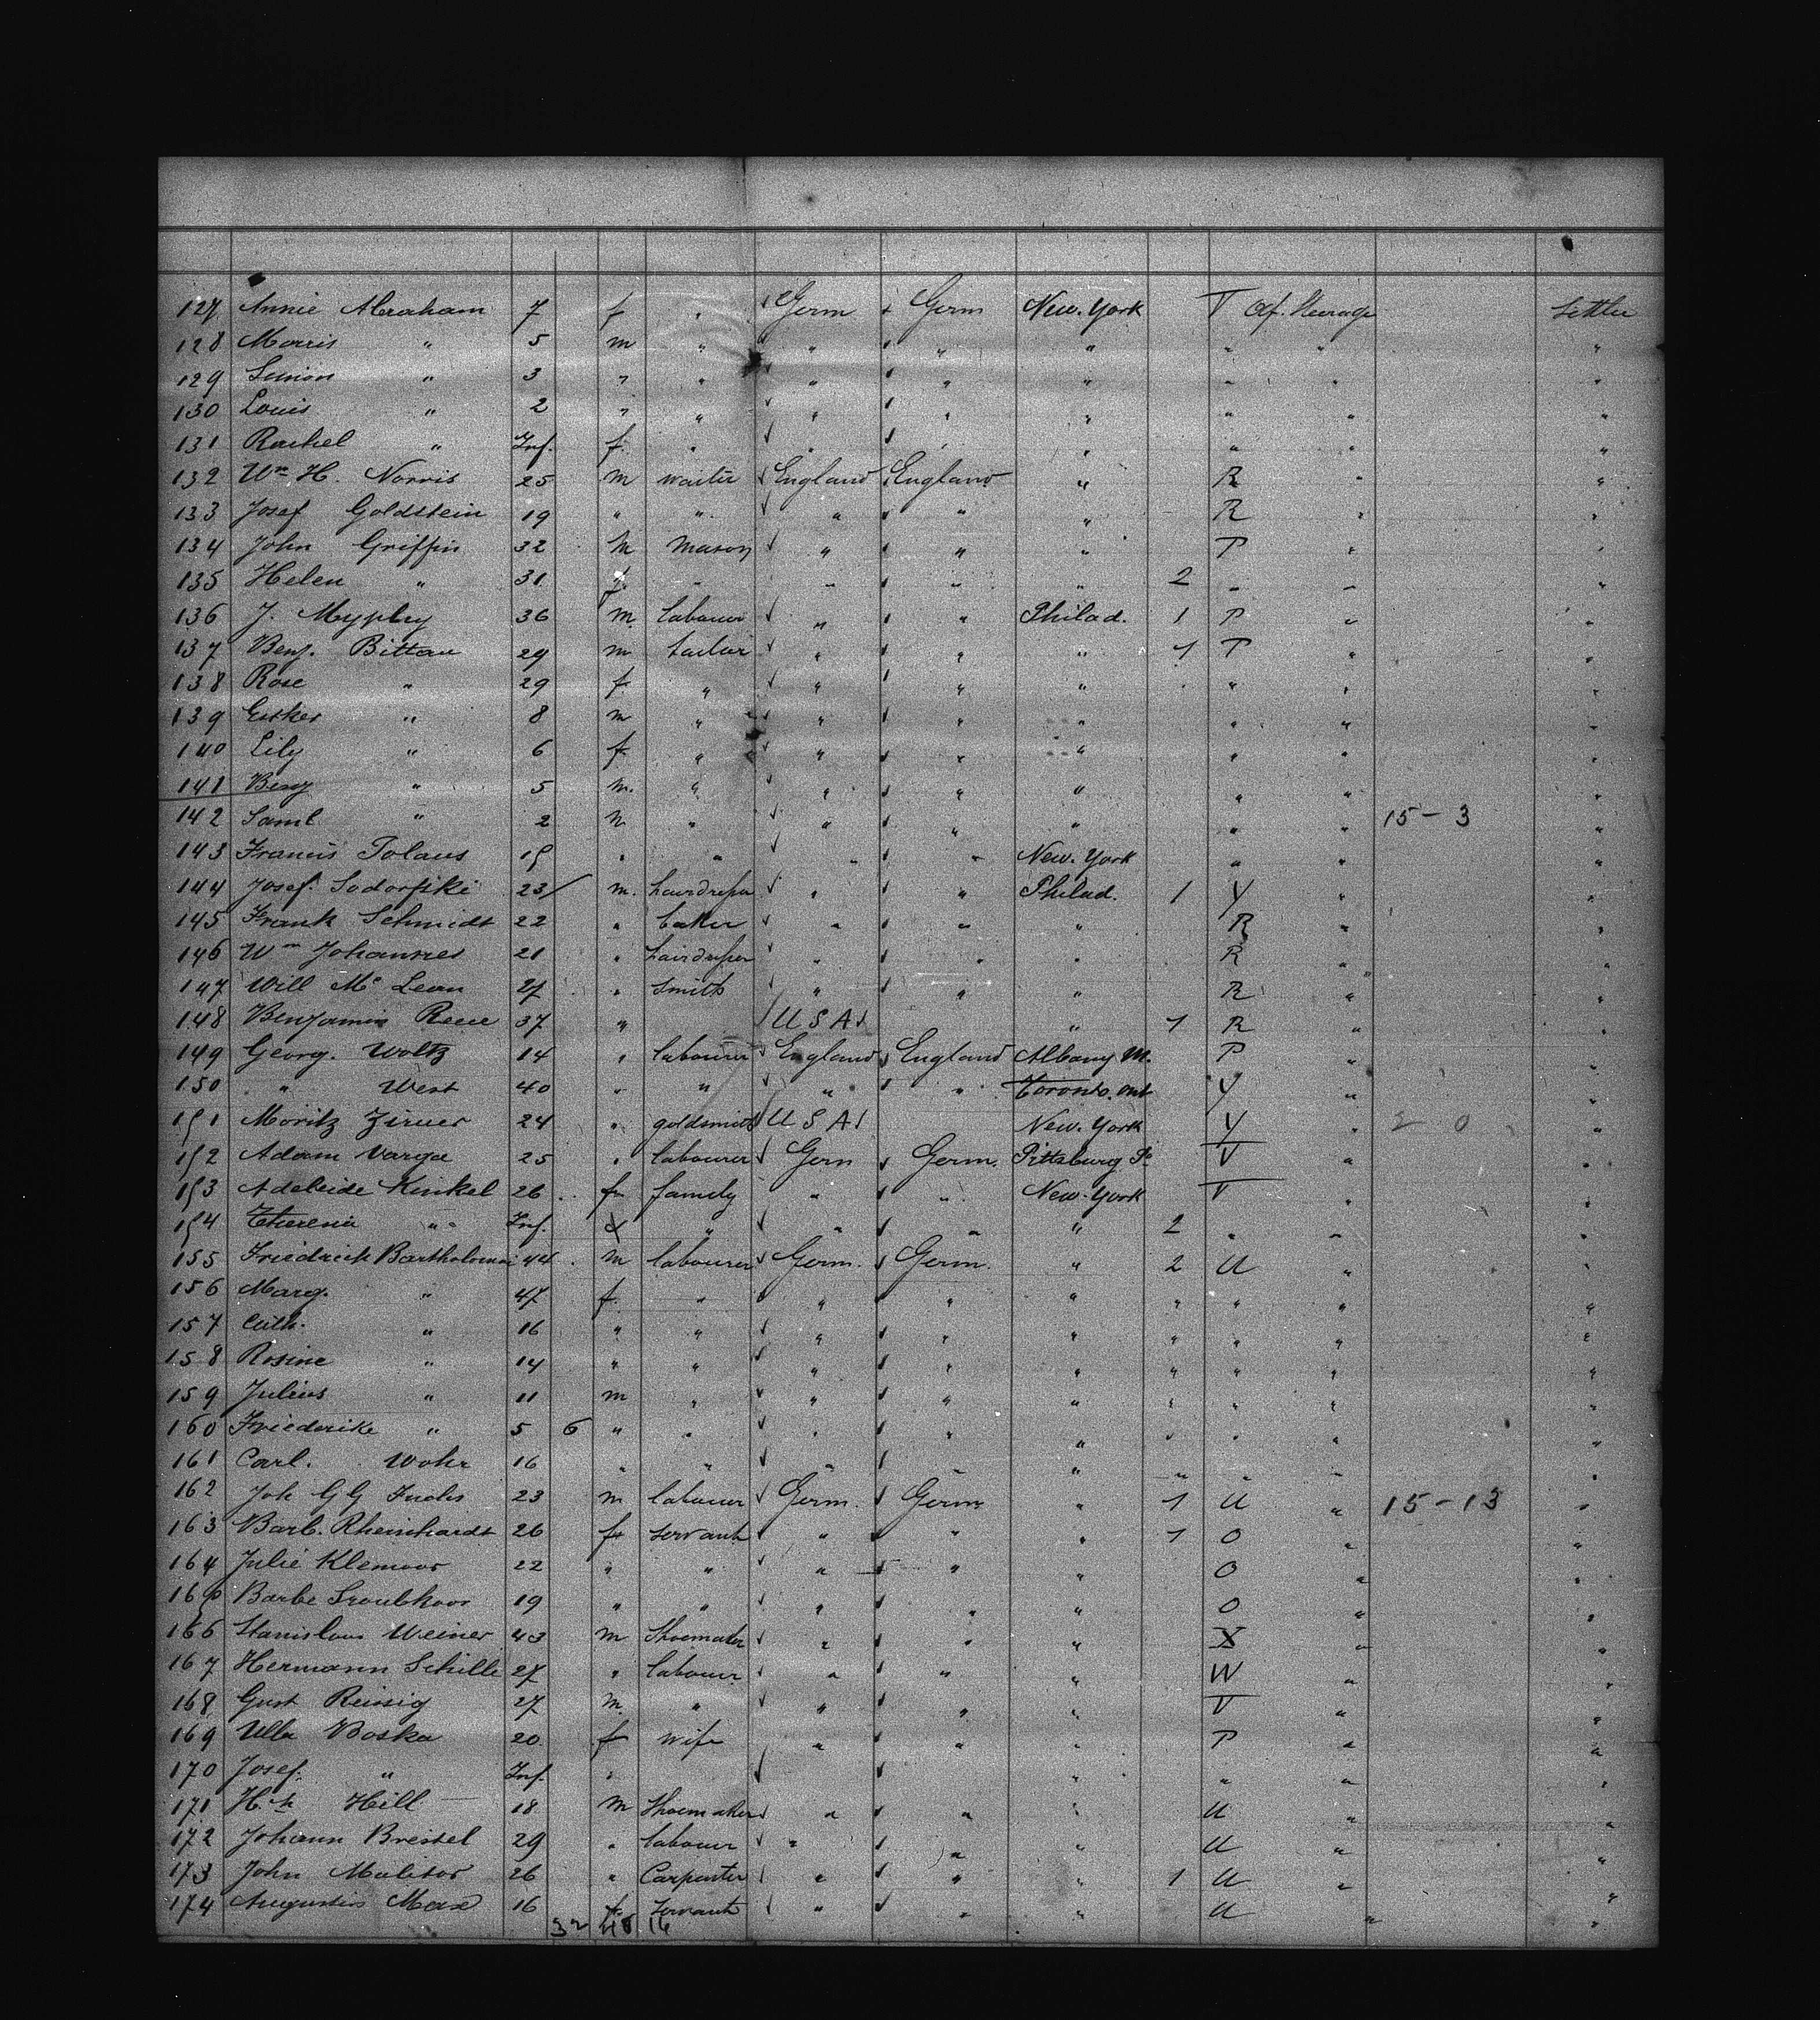 127 Annie Abraham 7 f " Germ Germ New. York T Af. Steerage Settler
128 Morris " 5 m " " " " " " "
129 Simon " 3 " " " " " " " "
130 Louis " 2 " " " " " " " "
131 Rachel " Inf. f. " " " " " " "
132 Wm H. Norris 25 m waiter England England " R " "
133 Josef Goldstein 19 " " " " " R " "
134 John Griffin 32 m mason " " " P " "
135 Helen " 31 f. " " " " 2 " " "
136 J. 36 m. labourer " " Philad. 1 P " "
137 Benj. Bittan 29 m tailor " " " 1 T " "
138 Rose " 29 f " " " " " " "
139 " 8 m " " " " " " "
140 Lily " 6 f " " " " " " "
141 Benj " 5 m. " " " " " " "
142 Saml " 2 m " " " " " " 15 - 3 "
143 Francis Tolaus 19 " " " " New. York " " "
144 Josef. 23 m. hairdresser " " Philad. 1 Y " "
145 Frank Schmidt 22 " baker " " " R " "
146 Wm Johannes 21 " hairdresser " " " R " "
147 Will Mc Lean 27 " smith " " " R " "
148 Benjamin Reese 37 " U S A " 1 R " "
149 Georg. Woltz 14 " labourer England England Albany P " "
150 " West 40 " " " " Toronto. Ont Y " "
151 Moritz Zirner 24 " goldsmith U S A New. York Y " 2 0 "
152 Adam Varga 25 " labourer Germ Germ. Pittsburg Pa V " "
153 Adeleide Kinkel 26 f family " " New-York V " "
154 Theresia " Inf. " " " " 2 " " "
155 Friedrich Bartholomai 44 m labourer Germ. Germ. " 2 U " "
156 Marg. " 47 f. " " " " " " " "
157 Cath. " 16 " " " " " " " " "
158 Rosine " 14 " " " " " " " " "
159 Julius " 11 m " " " " " " " "
160 Friederike " 5 6 " " " " " " " " "
161 Carl. Wohr 16 " " " " " " " " "
162 Joh GG Fuchs 23 m labourer Germ. Germ " 1 U " 15 - 13 "
163 Barb. Rheinhardt 26 f servant " " " 1 O " "
164 Julie Klemoor 22 " " " " " O " "
165 Barbe 19 " " " " " O " "
166 Stanislaus Weiner 43 m Shoemaker " " " X " "
167 Hermann Schille 27 " labourer " " " W " "
168 Gust Reinig 27 m. " " " " V " "
169 Ulla Boska 20 f wife " " " P " "
170 Josef. " Inf. " " " " "
171 Hill 18 m Shoemaker " " " U " "
172 Johann Bressel 29 " labourer " " " U " "
173 John Molitor 26 " Carpenter " " " 1 U " "
174 Augustin Max 16 f. Servant " " " U " "
32 48 16